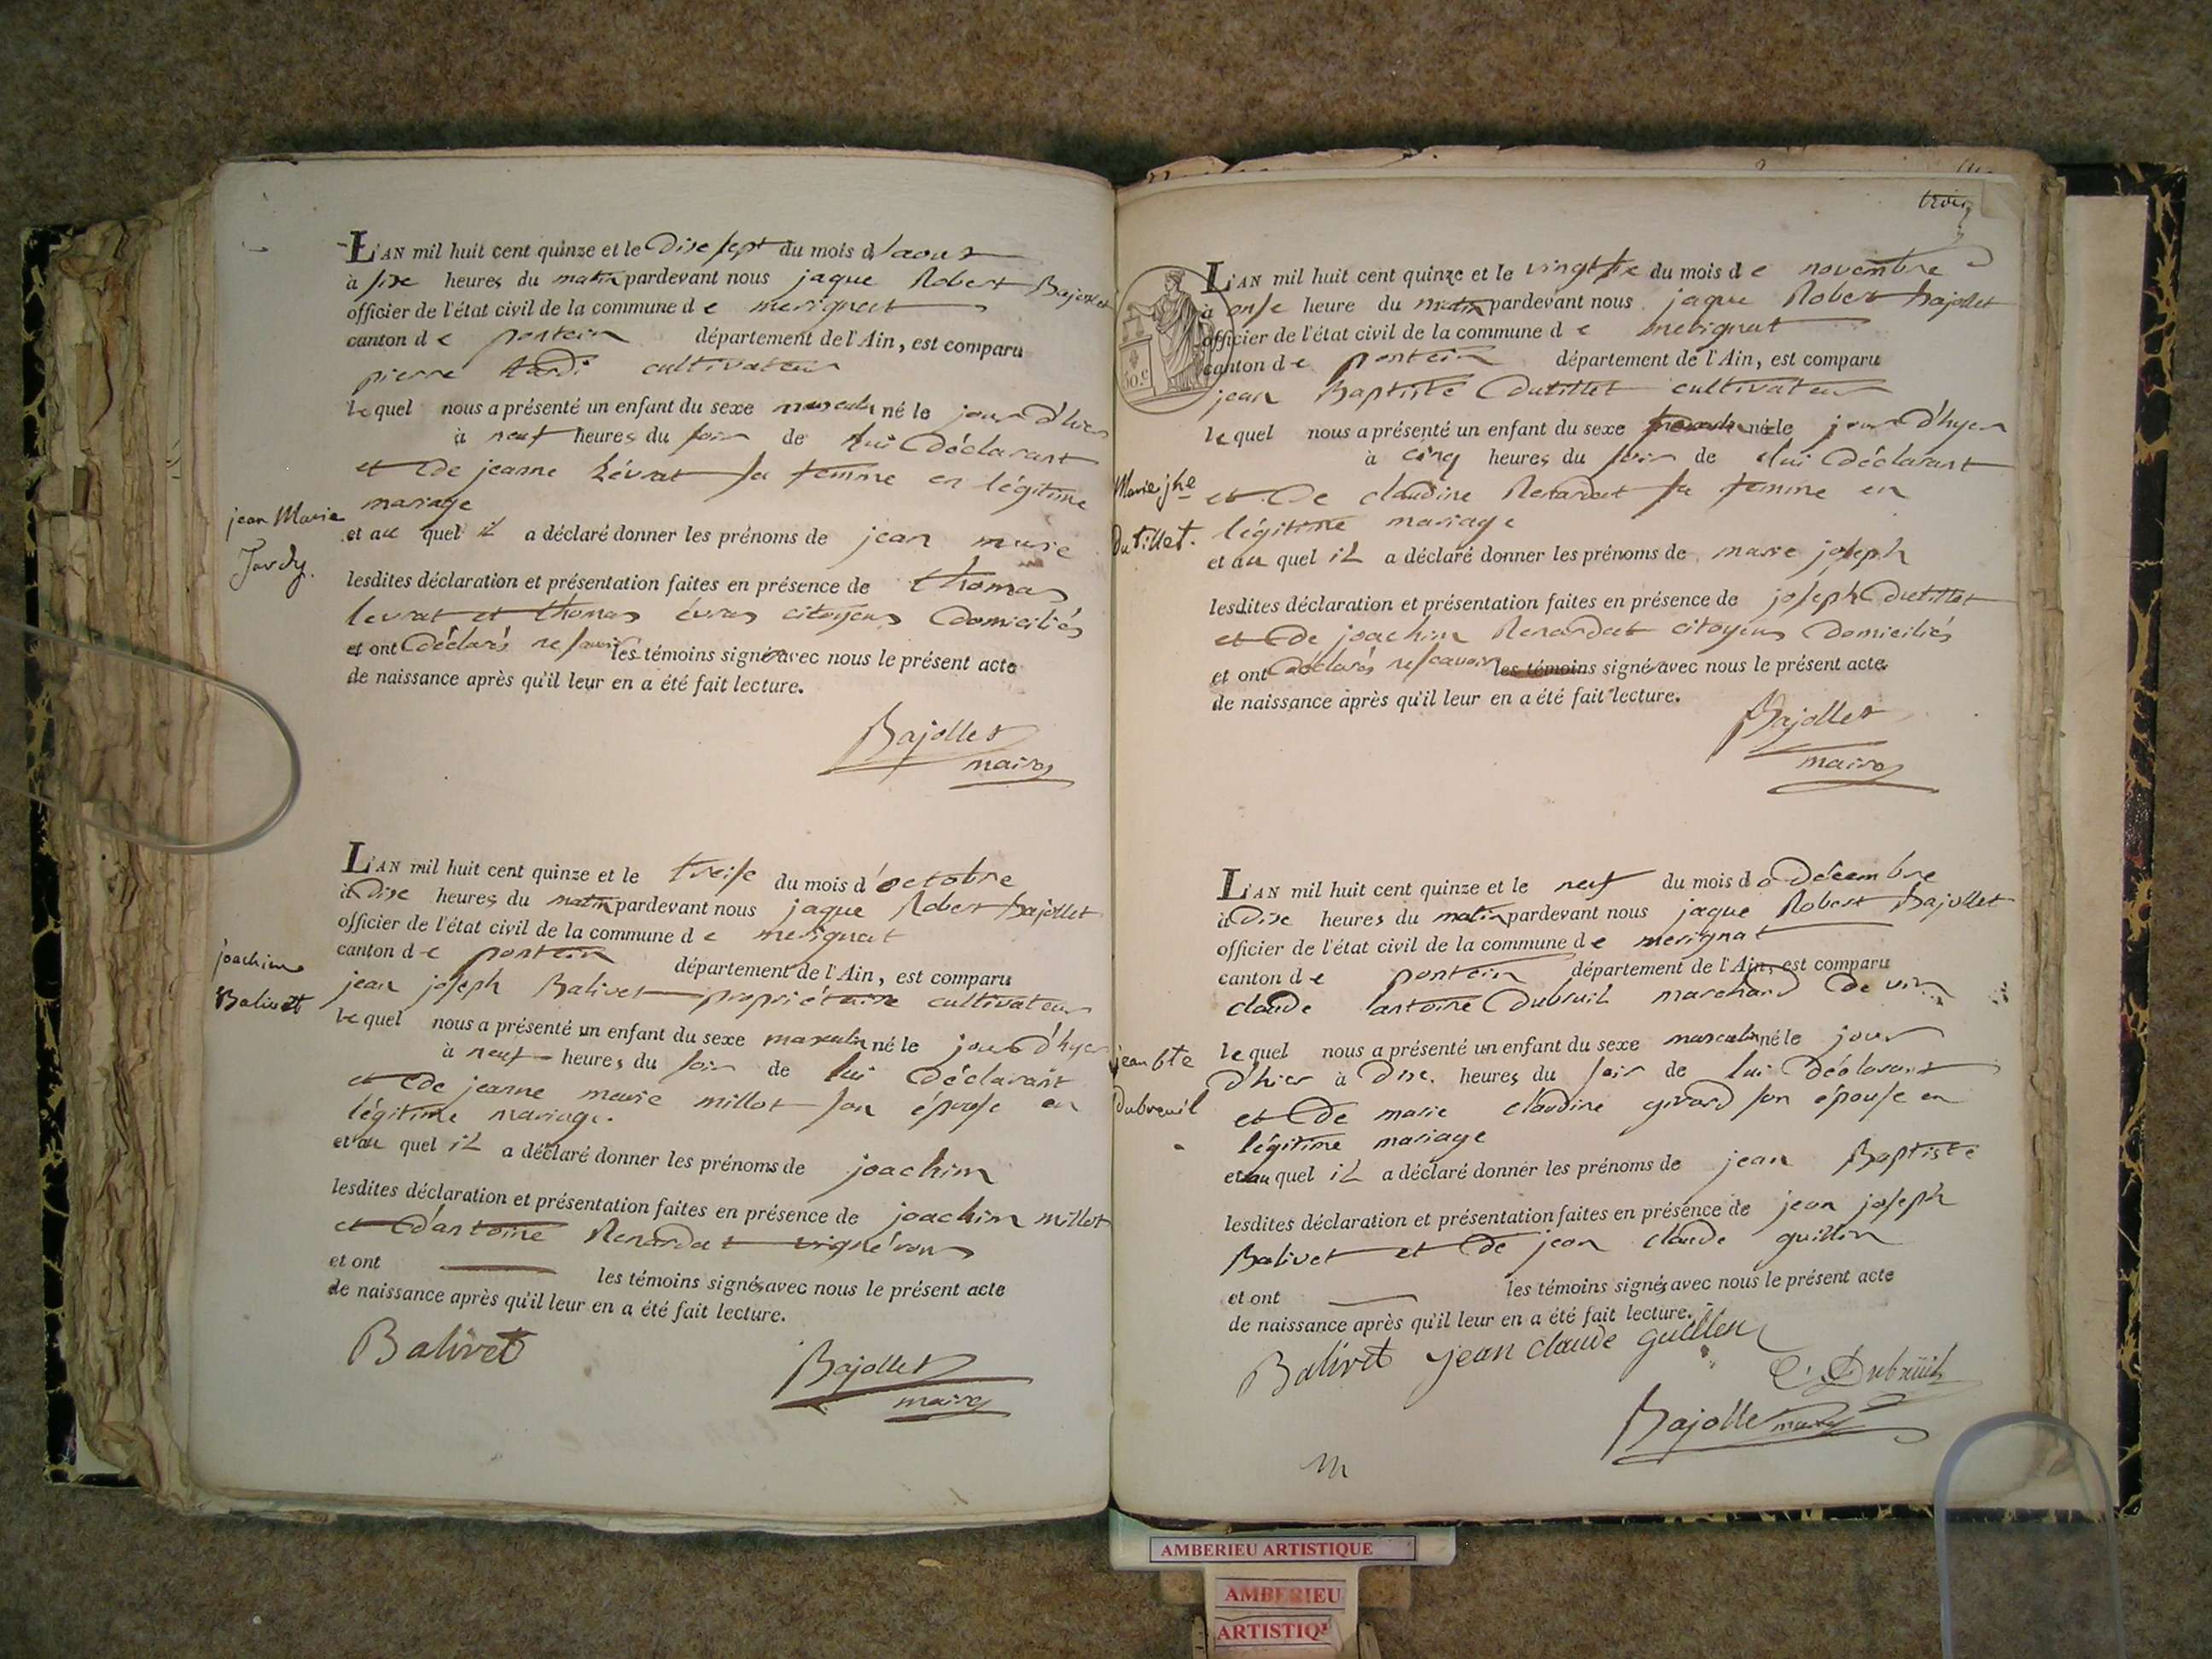 L'AN mil huit cent quinze et le dixe sept du mois d'aout
à six heures du matin pardevant nous jaque Robert Bajollet
officier de l'état civil de la commune de merignat
canton de poncin département de l'Ain, est comparu
pierre tardi cultivateur
lequel nous a présenté un enfant du sexe masculin né le jour d'hier
à neuf heures du soir de lui déclarant
et de jeanne Lévrat sa femme en légitime
mariage
jean Marie
Jardy.
et au quel il a déclaré donner les prénoms de jean marie
lesdites déclaration et présentation faites en présence de thomas
levrat et thomas évras citoyens domiciliés
et ont déclarés ne savoir les témoins signé avec nous le présent acte
de naissance après qu'il leur en a été fait lecture.
Bajollet
maire
L'AN mil huit cent quinze et le treise du mois d'octobre
à dixe heures du matin pardevant nous jaque Robert bajollet
officier de l'état civil de la commune de merignat
canton de poncin département de l'Ain, est comparu
joachim
Balivet
jean joseph Balivet propriétaire cultivateur
lequel nous a présenté un enfant du sexe masculin né le jour d'hyer
à neuf heures du soir de lui déclarant
et de jeanne marie millot son épouse en
légitime mariage.
et au quel il a déclaré donner les prénoms de joachim
lesdites déclaration et présentation faites en présence de joachim millot
et d'antoine Renardat vignérons
et ont les témoins signés avec nous le présent acte
de naissance après qu'il leur en a été fait lecture.
Balivet
Bajollet
maire
trois
L'AN mil huit cent quinze et le du mois de novembre
à onse heure du matin pardevant nous jaque Robert bajollet
officier de l'état civil de la commune de merignat
canton de poncin département de l'Ain, est comparu
50.c
jean Baptiste Dutillet cultivateur
lequel nous a présenté un enfant du sexe né le jour d'hyer
à cinq heures du soir de lui déclarant
Marie jhe
Dutillet.
et de claudine Renardat sa femme en
légitime mariage
et au quel il a déclaré donner les prénoms de marie joseph
lesdites déclaration et présentation faites en présence de joseph Dutillet
et de joachim Renardat citoyens domiciliés
et ont déclarés ne scavoir les témoins signé avec nous le présent acte
de naissance après qu'il leur en a été fait lecture.
Bajollet
maire
L'AN mil huit cent quinze et le neuf du mois de décembre
à dixe heures du matin pardevant nous jaque Robert bajollet
officier de l'état civil de la commune de merignat
canton de poncin département de l'Ain, est comparu
claude antoine Dubruil marchand de vin
lequel nous a présenté un enfant du sexe masculin né le jour
jean bte
Dubreuil
d'hier à dixe heures du soir de lui déclarant
et de marie claudine girard son épouse en
légitime mariage
et au quel il a déclaré donner les prénoms de jean Baptiste
lesdites déclaration et présentation faites en présence de jean joseph
Balivet et de jean claude guillon
et ont les témoins signés avec nous le présent acte
de naissance après qu'il leur en a été fait lecture.
Balivet jean claude guillon
C. Dubruil
Bajollet maire
AMBERIEU ARTISTIQUE
AMBERIEU
ARTISTIQ